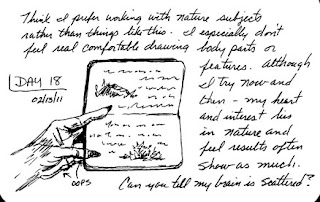 Think I prefer working with nature subjects
rather than things like this. I especially don't
feel real comfortable drawing body parts or
features. Although
I try now and
then - my heart
and interest lies
in nature and
feel results often
show as much.
DAY 18
02/13/11
OOPS
Can you tell my brain is scattered?